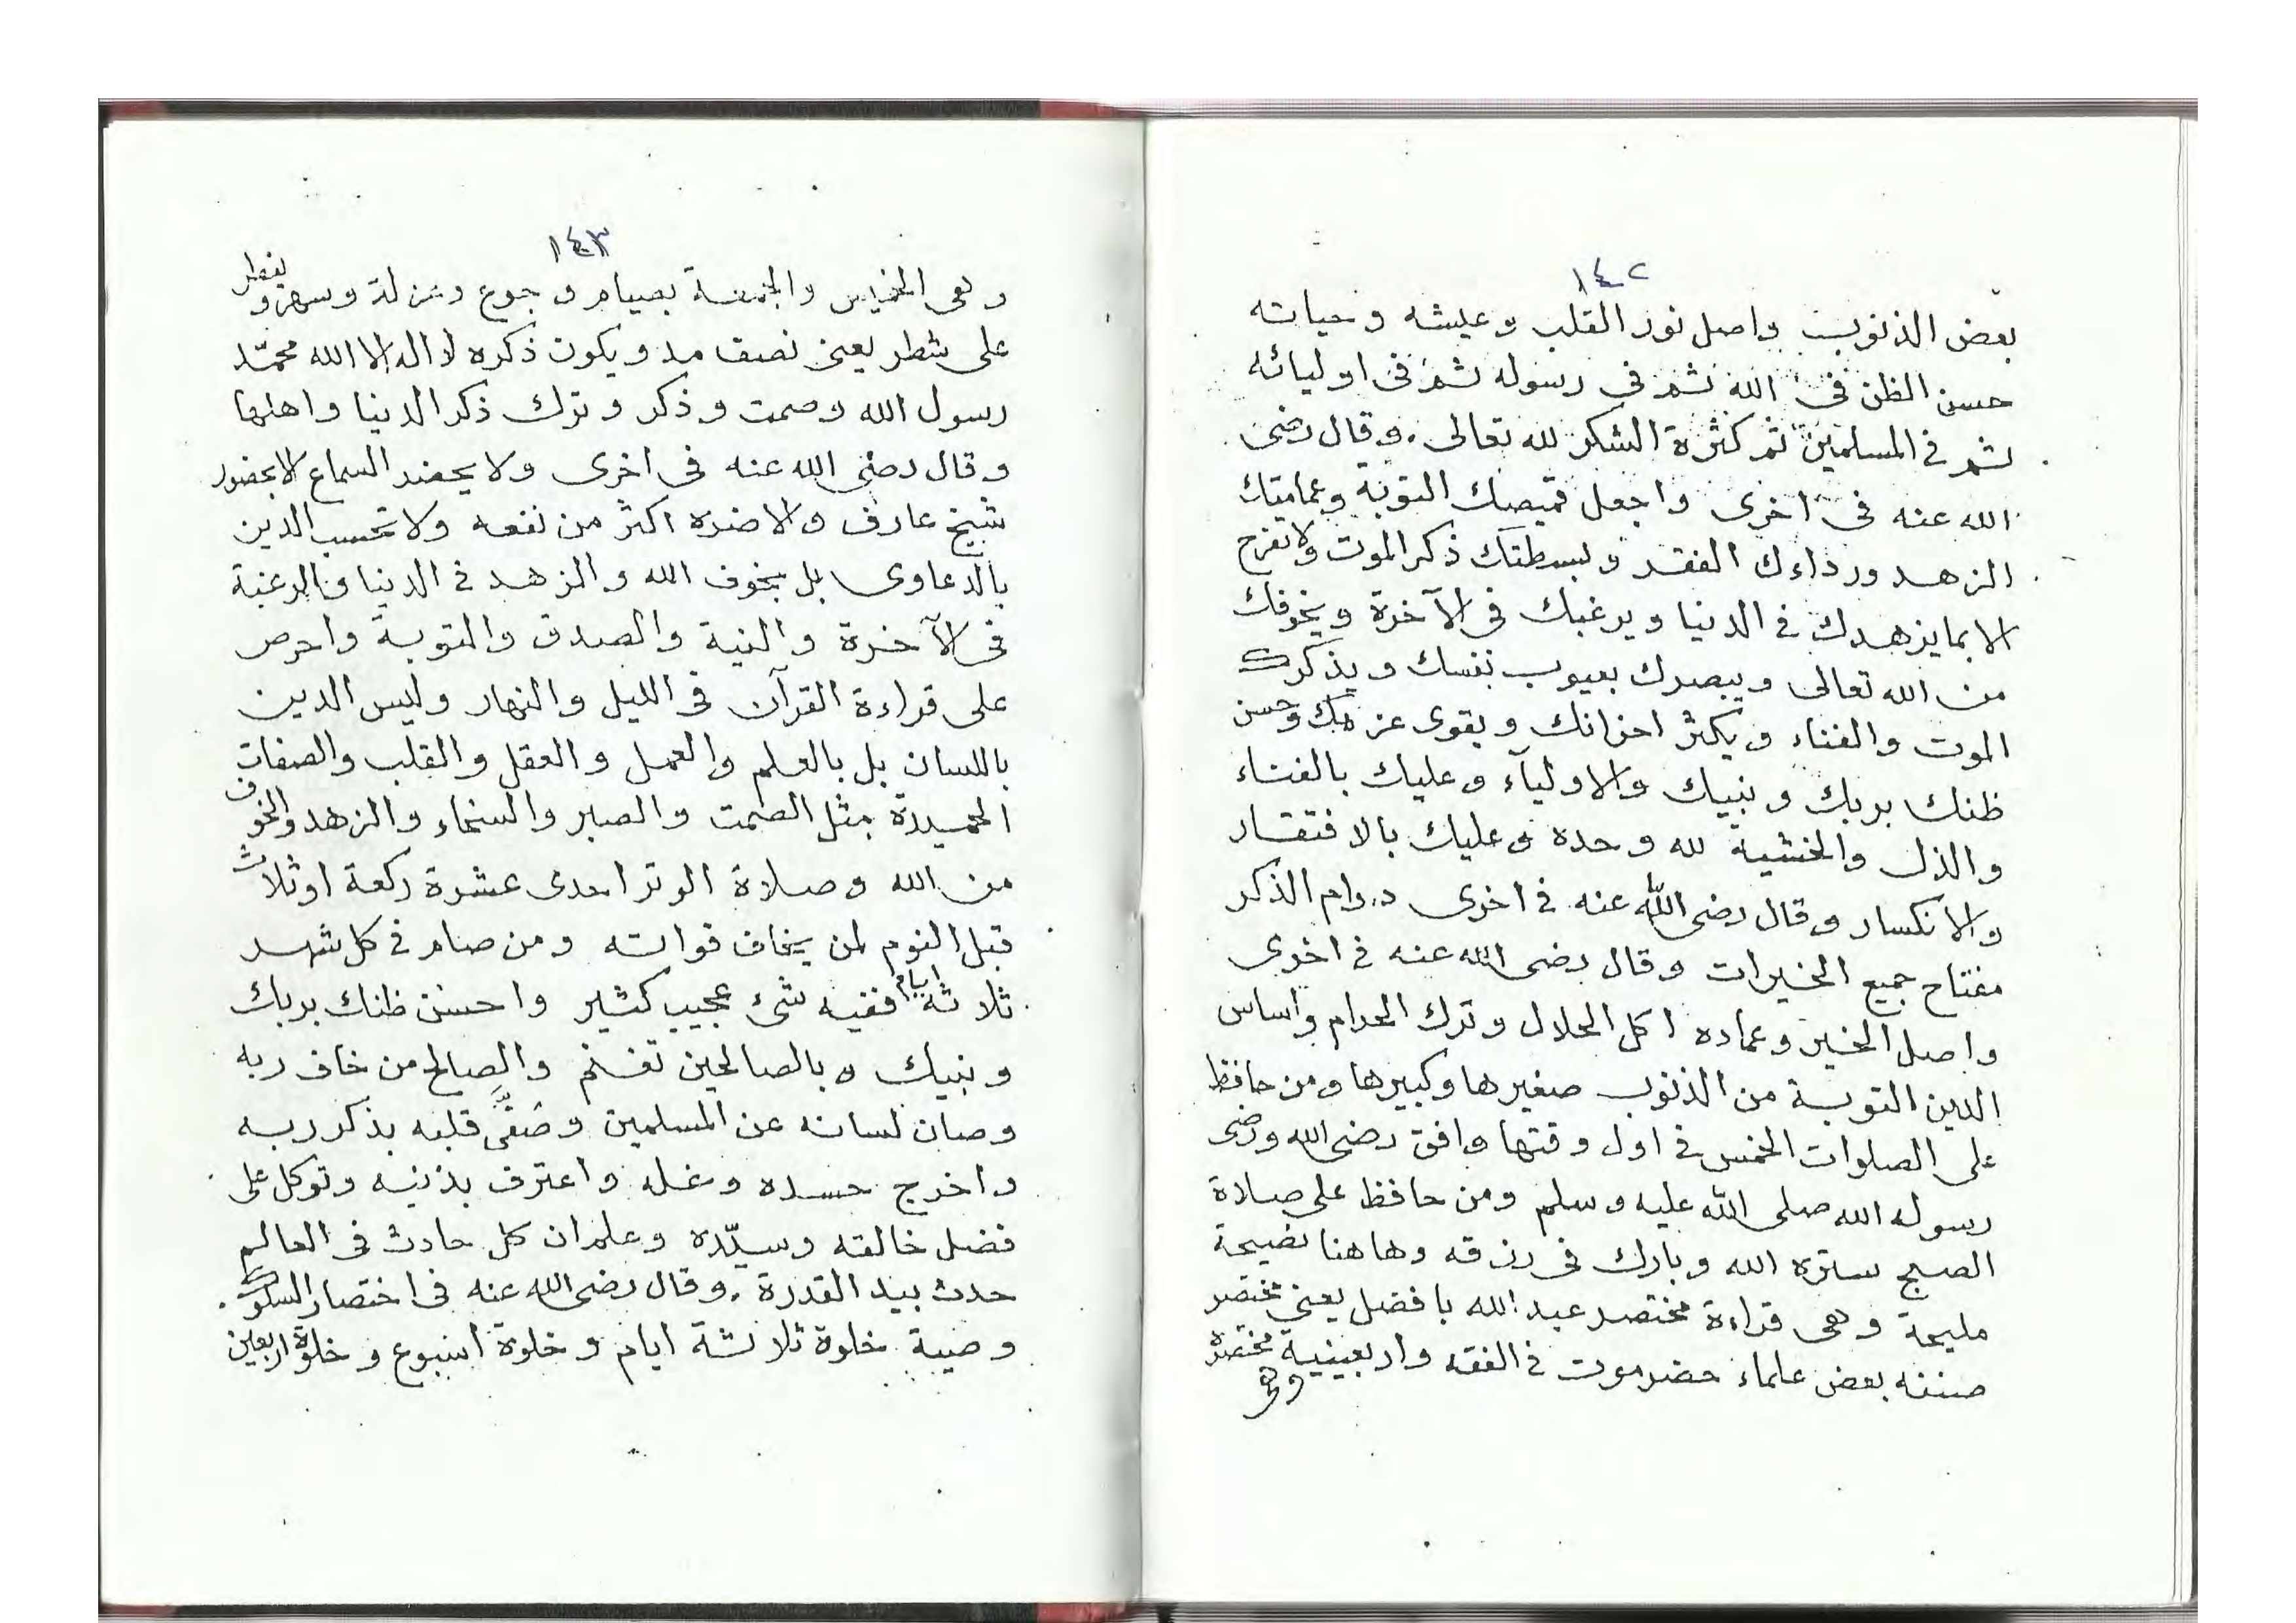 ١٤٢
بعض الذنوب واصل نور القلب وعيشه وحياته
حسن الظن في الله ثم في رسوله ثم في اوليائه
ثم في المسلمين ثم كثرة الشكر لله تعالى. وقال رضي
الله عنه في اخرى واجعل قميصك التوبة وعمامتك
الزهد ورداءك الفقد وبسطتك ذكر الموت ولا تفرح
الا بما يزهدك في الدنيا ويرغبك في الآخرة ويخوفك
من الله تعالى ويبصرك بعيوب نفسك ويذكرك
الموت والفناء ويكثر احزانك ويقوى عزمك وحسن
ظنك بربك ونبيك والاولياء وعليك بالفناء
والذل والخشية لله وحده وعليك بالافتقار
والانكسار وقال رضى الله عنه في اخرى دوام الذكر
مفتاح جميع الخيرات وقال رضى الله عنه في اخرى
واصل الخير وعماده اكل الحلال وترك الحرام واساس
الدين التوبة من الذنوب صغيرها وكبيرها ومن حافظ
على الصلوات الخمس في اول وقتها وافق رضى الله ورضى
رسوله الله صلى الله عليه وسلم ومن حافظ على صلاة
الصبح ستره الله وبارك في رزقه وهاهنا نصيحة
مليحة وهى قراءة مختصر عبد الله بافضل يعني مختصر
صنفه بعض علماء حضرموت في الفقه واربعينية مختصرة
وهى
١٤٣
وهى الخميس والجمعة بصيام وجوع وعزلة وسهر ويفطر
على شطر يعنى نصف مد ويكون ذكره لا اله الا الله محمّد
رسول الله وصمت وذكر وترك ذكر الدنيا واهلها
وقال رضي الله عنه في اخرى ولا يحضر السماع الا بحضور
شيخ عارف والا ضره اكثر من نفعه ولا تحسب الدين
بالدعاوى بل بخوف الله والزهد في الدنيا والرغبة
في الآخرة والنية والصدق والتوبة واحرص
على قراءة القرآن في الليل والنهار وليس الدين
باللسان بل بالعلم والعمل والعقل والقلب والصفات
الحميدة مثل الصمت والصبر والسخاء والزهد والخوف
من الله وصلاة الوتر احدى عشرة ركعة او ثلاث
قبل النوم لمن يخاف فواته ومن صام في كل شهر
ثلاثة ايام ففيه شئ عجيب كثير واحسن ظنك بربك
ونبيك وبالصالحين تغنم والصالح من خاف ربه
وصان لسانه عن المسلمين وصَفَّى قلبه بذكر ربه
واخرج حسده وغله واعترف بذنبه وتوكل على
فضل خالقه وسيّده وعلم ان كل حادث في العالم
حدث بيد القدرة. وقال رضى الله عنه في اختصار السلوك
وصية خلوة ثلاثة ايام وخلوة اسبوع وخلوة اربعين